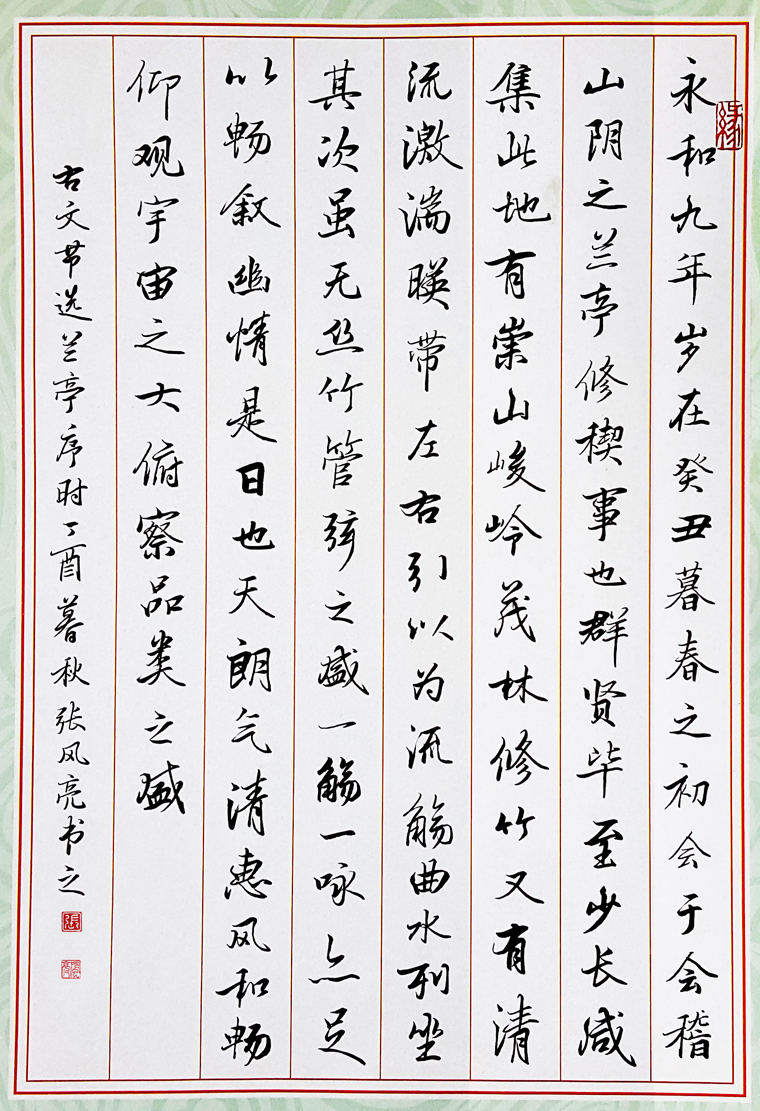 緣
永和九年岁在癸丑暮春之初会于会稽
山阴之兰亭修稧事也群贤毕至少长咸
集此地有崇山峻岭茂林修竹又有清
流激湍暎带左右引以为流觞曲水列坐
其次虽无丝竹管弦之盛一觞一咏亦足
以畅叙幽情是日也天朗气清惠风和畅
仰观宇宙之大俯察品类之盛
古文节选兰亭序时丁酉暮秋张风亮书之
張